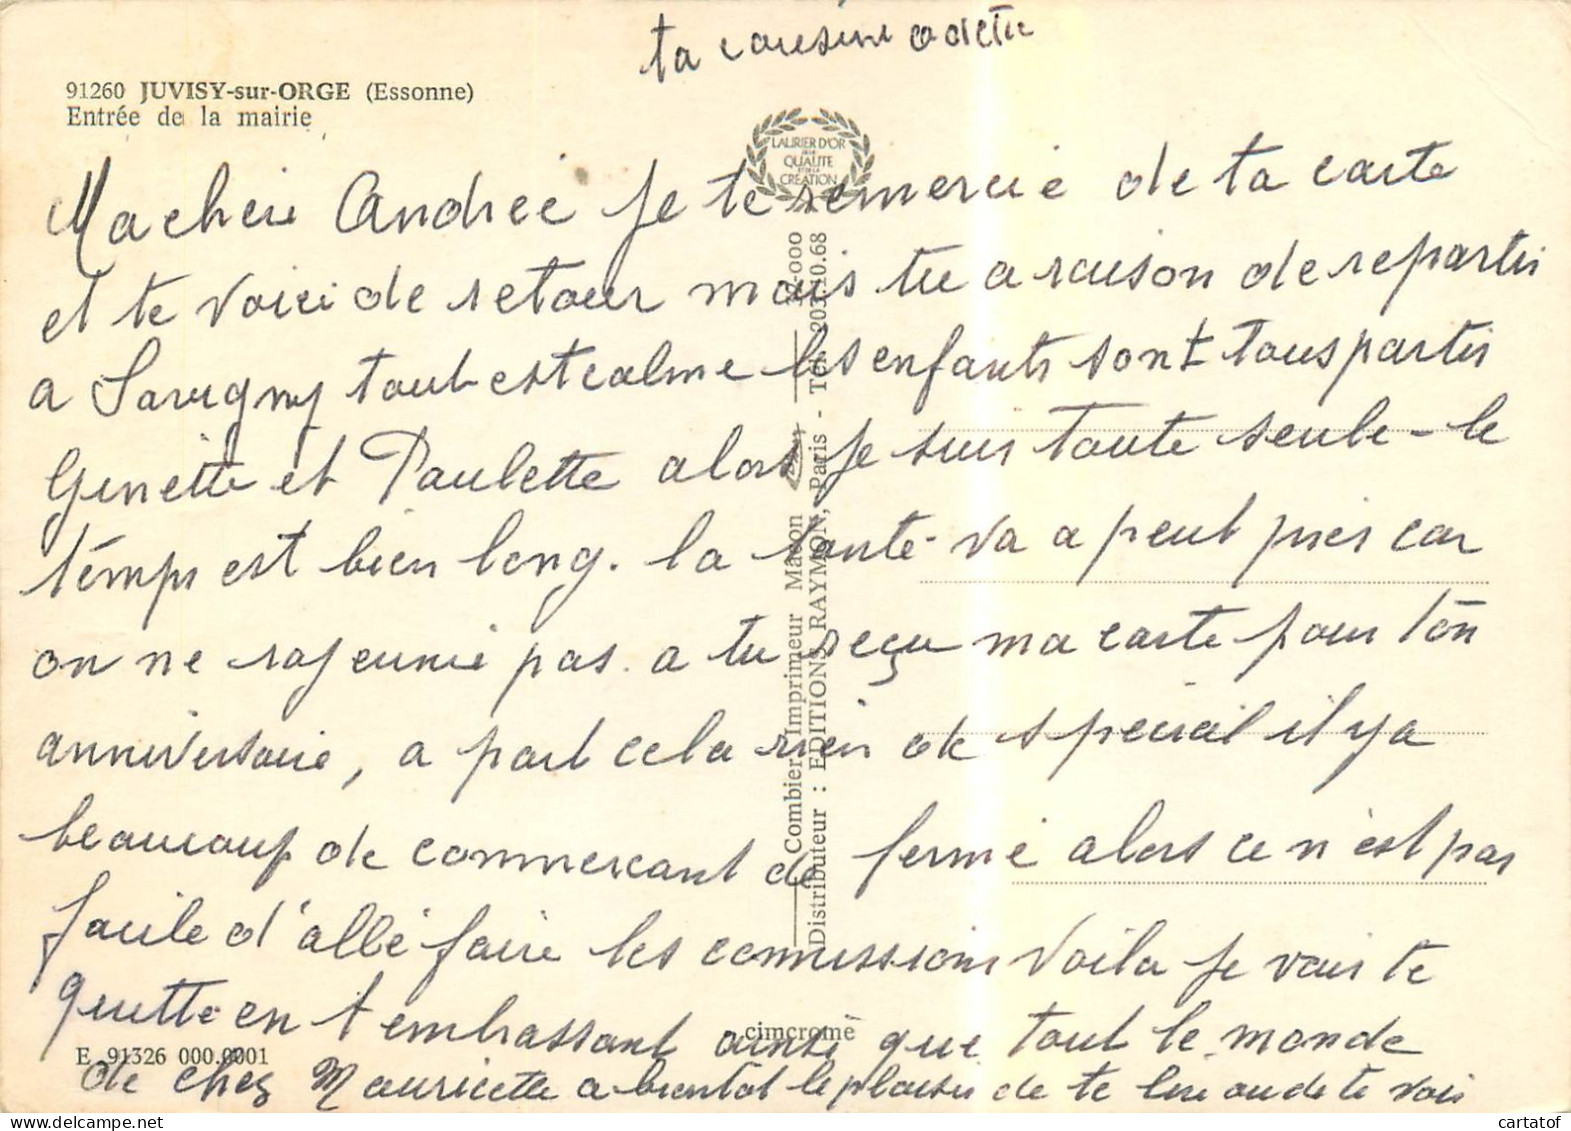 ta cousine odette
91260 JUVISY-sur-ORGE (Essonne)
Entrée de la mairie
LAURIER D'OR
QUALITE
CREATION
Ma cheie Andreé je te remercie de ta carte
et te voici de retour mais tu a raison de repartis
a Savigny tout est calme les enfants sont tous partis
Ginette et Paulette alors je suis toute seule - le
temps est bien long. la tante va a peut pres car
on ne rajeunie pas. a tu reçu ma carte pour ton
anniversaire, a part cela rien de special il y a
beaucoup de commercant de fermé alors ce n'est pas
facile d'allé faire les comissions voila je vais te
quitte en t'embrassant ainsi que tout le monde
de chez Mauricette a bientot le plaisir de te lire ou de te vois
Combier Imprimeur Macon
Distributeur : EDITIONS RAYMON, Paris - Tél. 203.10.68
cimcrome
E 91326 000.0001
www.delcampe.net
cartatof